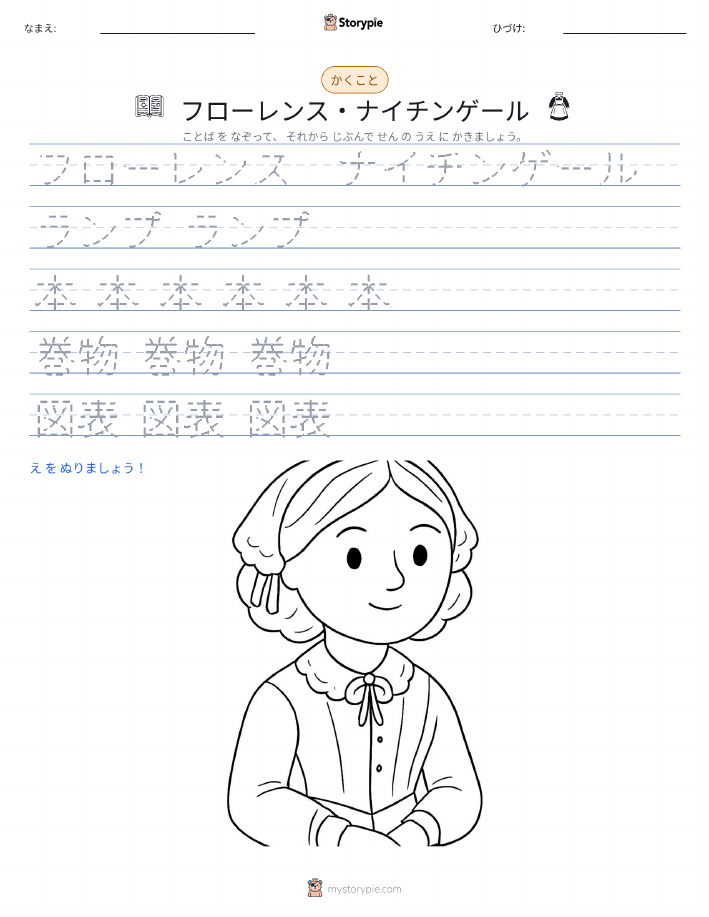 なまえ:
Storypie
ひづけ:
かくこと
フローレンス・ナイチンゲール
ことば を なぞって、 それから じぶんで せん の うえ に かきましょう。
フローレンス ナイチンゲール
ランプ ランプ
本 本 本 本 本 本
巻物 巻物 巻物
図表 図表 図表
え を ぬりましょう！
mystorypie.com